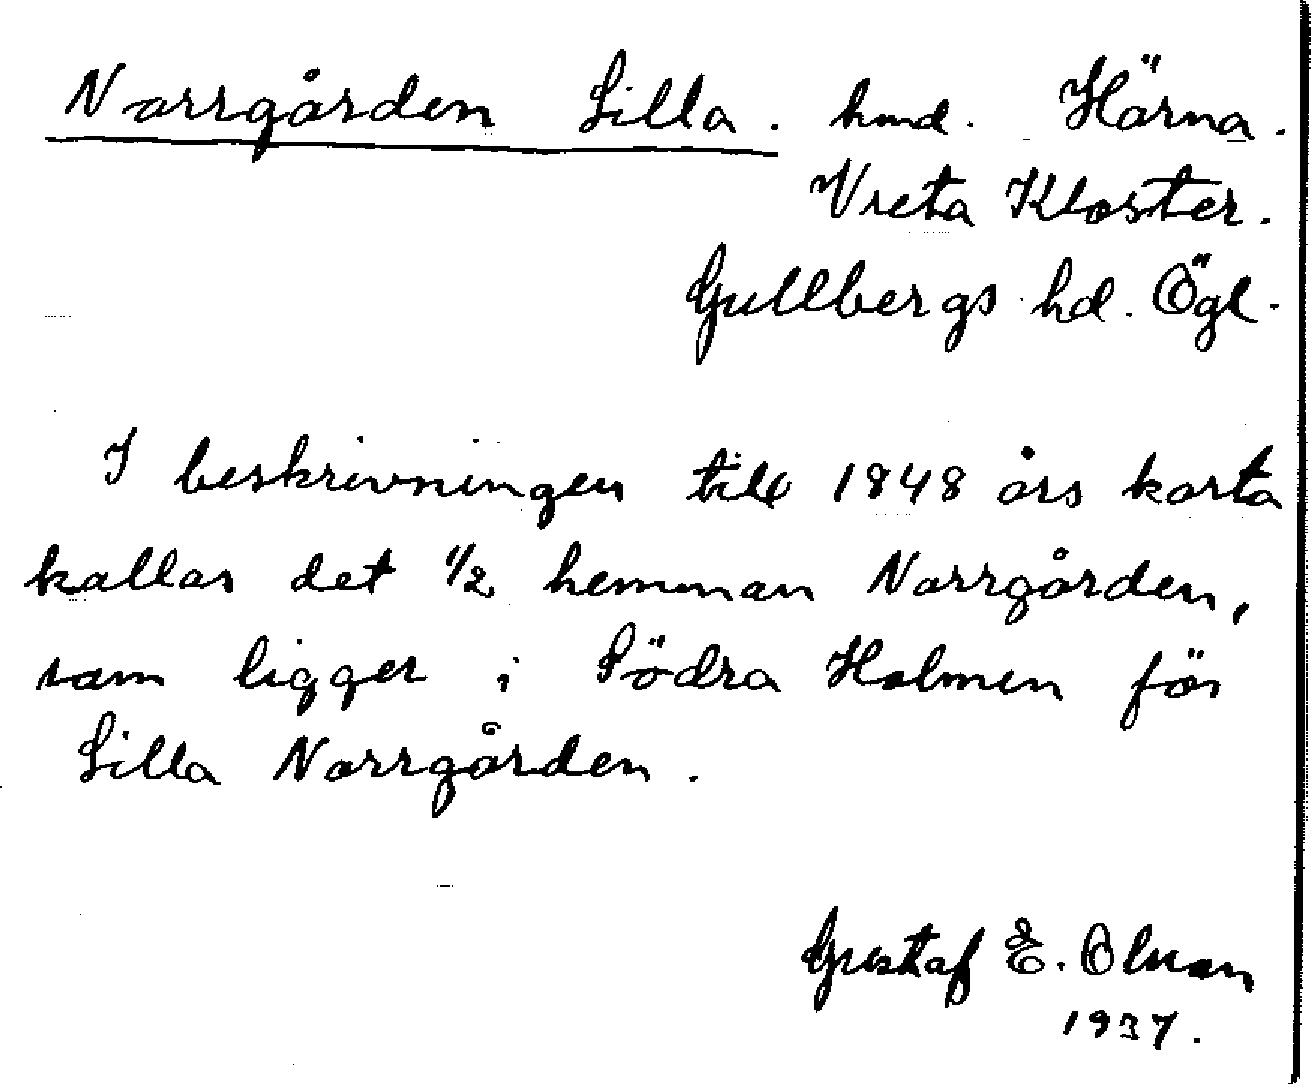 Norrgården Lilla. hmd. Härna.
Vreta Kloster.
Gullbergs hd. Ögl.
I beskrivningen till 1848 års karta
kallas det 1/2 hemman Norrgården,
som ligger i Södra Holmen för
Lilla Norrgården.
Gustaf E. Olson
1937.